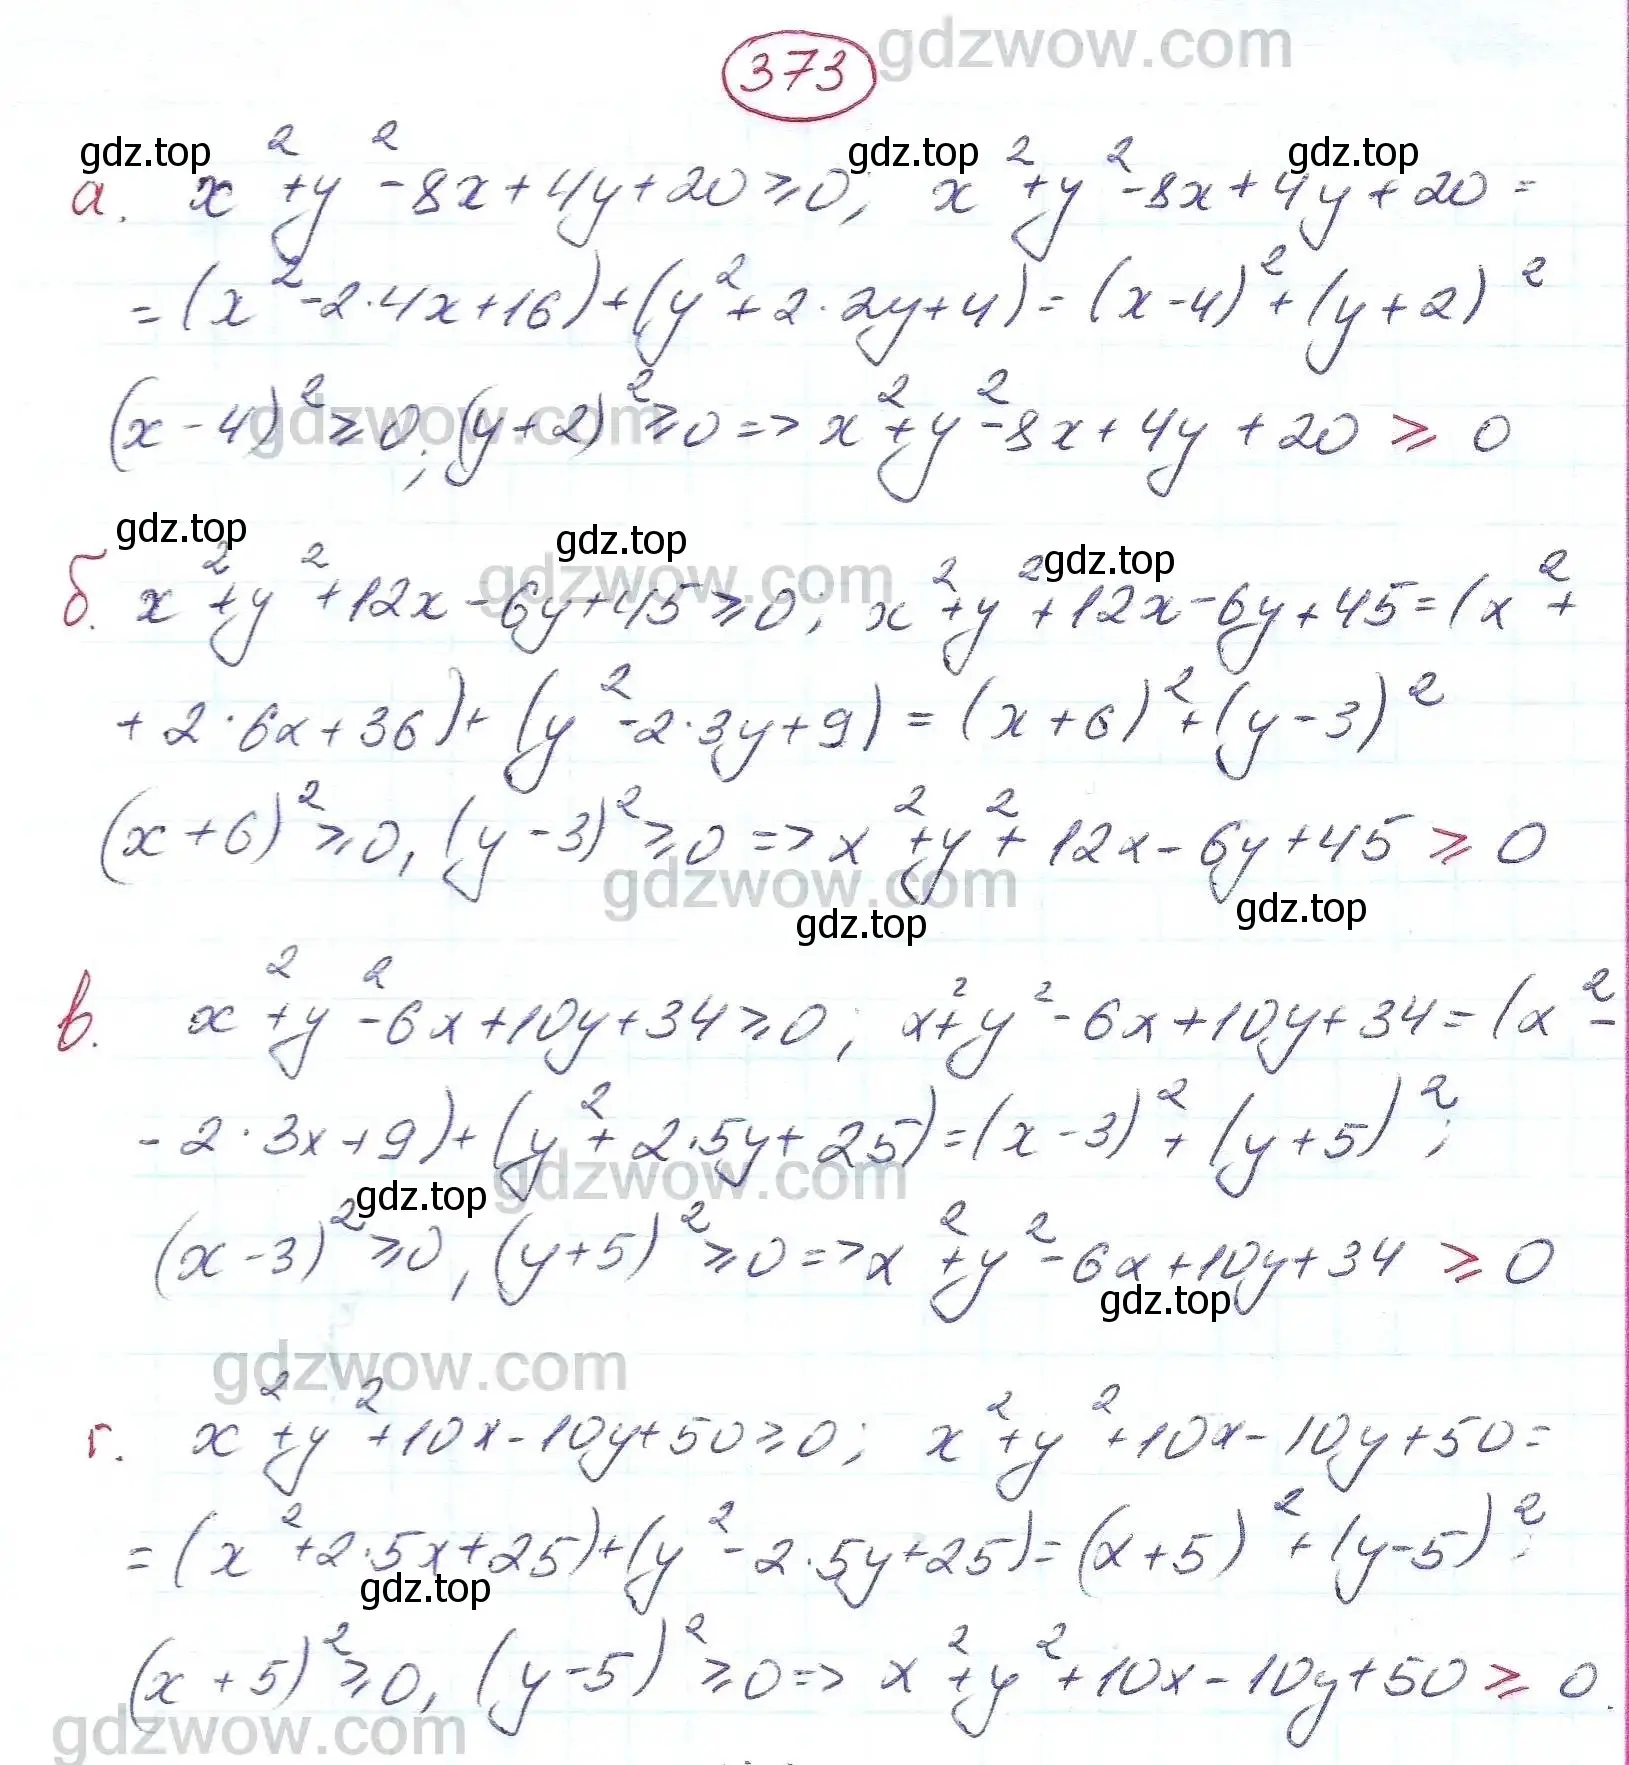 gdzwow.com
373
gdz.top gdz.top gdz.top
а. x² + y² - 8x + 4y + 20 ⩾ 0; x² + y² - 8x + 4y + 20 =
= (x² - 2·4x + 16) + (y² + 2·2y + 4) = (x - 4)² + (y + 2)²
gdzwow.com
(x - 4)² ⩾ 0; (y + 2)² ⩾ 0 => x² + y² - 8x + 4y + 20 ⩾ 0
gdz.top gdz.top gdz.top
gdzwow.com
б. x² + y² + 12x - 6y + 45 ⩾ 0; x² + y² + 12x - 6y + 45 = (x² +
+ 2·6x + 36) + (y² - 2·3y + 9) = (x + 6)² + (y - 3)²
(x + 6)² ⩾ 0, (y - 3)² ⩾ 0 => x² + y² + 12x - 6y + 45 ⩾ 0
gdzwow.com
gdz.top gdz.top
в. x² + y² - 6x + 10y + 34 ⩾ 0; x² + y² - 6x + 10y + 34 = (x² -
- 2·3x + 9) + (y² + 2·5y + 25) = (x - 3)² + (y + 5)²;
gdzwow.com
gdz.top
(x - 3)² ⩾ 0, (y + 5)² ⩾ 0 => x² + y² - 6x + 10y + 34 ⩾ 0
gdz.top
gdzwow.com
г. x² + y² + 10x - 10y + 50 ⩾ 0; x² + y² + 10x - 10y + 50 =
= (x² + 2·5x + 25) + (y² - 2·5y + 25) = (x + 5)² + (y - 5)²;
gdz.top
(x + 5)² ⩾ 0, (y - 5)² ⩾ 0 => x² + y² + 10x - 10y + 50 ⩾ 0.
gdzwow.com